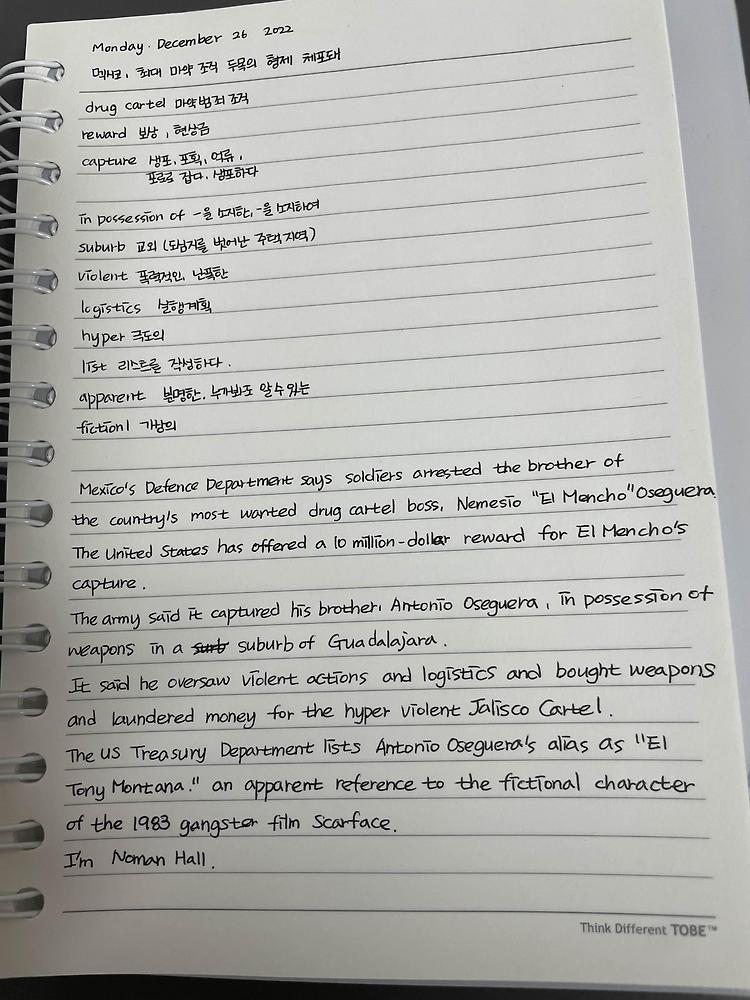 Monday. December 26 2022
멕시코, 최대 마약 조직 두목의 형제 체포돼
drug cartel 마약범죄 조직
reward 보상, 현상금
capture 생포, 포획, 억류,
포로로 잡다. 생포하다
in possession of -을 소지한, -을 소지하여
suburb 교외 (도심지를 벗어난 주택지역)
violent 폭력적인, 난폭한
logistics 실행계획
hyper 극도의
list 리스트를 작성하다.
apparent 분명한. 누가봐도 알수있는
fictionl 가상의
Mexico's Defence Department says soldiers arrested the brother of
the country's most wanted drug cartel boss, Nemesio "El Mencho" Oseguera.
The United States has offered a 10 million-dollar reward for El Mencho's
capture.
The army said it captured his brother, Antonio Oseguera, in possession of
weapons in a suburb of Guadalajara.
It said he oversaw violent actions and logistics and bought weapons
and laundered money for the hyper violent Jalisco Cartel.
The US Treasury Department lists Antonio Oseguera's alias as "El
Tony Montana." an apparent reference to the fictional character
of the 1983 gangster film Scarface.
I'm Noman Hall.
Think Different TOBE™